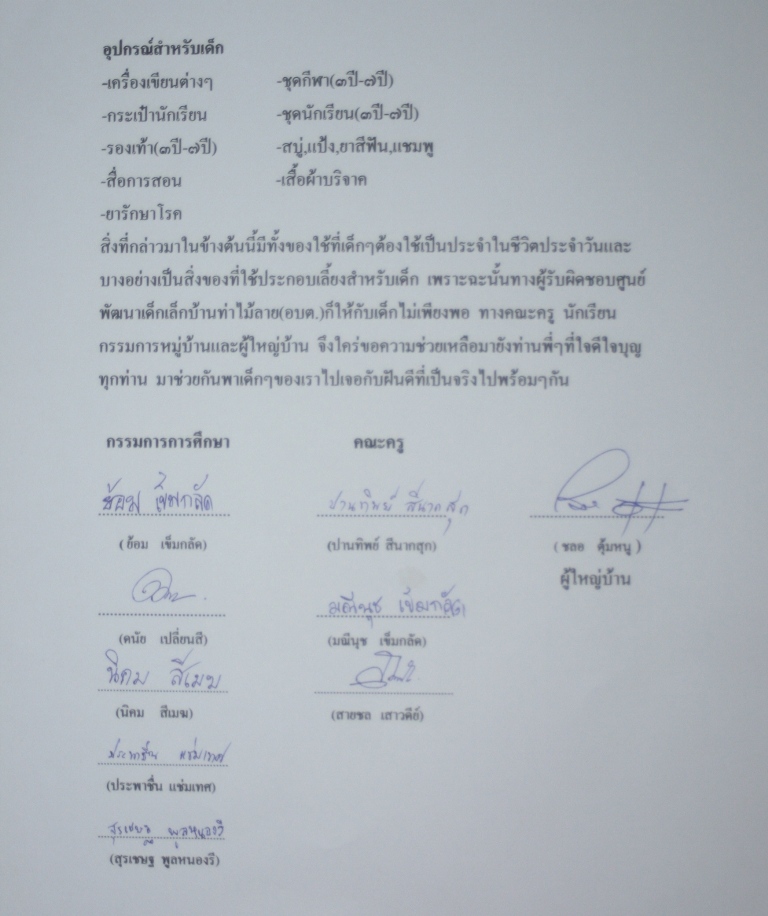 อุปกรณ์สำหรับเด็ก
-เครื่องเขียนต่างๆ -ชุดกีฬา(๓ปี-๗ปี)
-กระเป๋านักเรียน -ชุดนักเรียน(๓ปี-๗ปี)
-รองเท้า(๓ปี-๗ปี) -สบู่,แป้ง,ยาสีฟัน,แชมพู
-สื่อการสอน -เสื้อผ้าบริจาค
-ยารักษาโรค
สิ่งที่กล่าวมาในข้างต้นนี้มีทั้งของใช้ที่เด็กๆต้องใช้เป็นประจำในชีวิตประจำวันและ
บางอย่างเป็นสิ่งของที่ใช้ประกอบเลี้ยงสำหรับเด็ก เพราะฉะนั้นทางผู้รับผิดชอบศูนย์
พัฒนาเด็กเล็กบ้านท่าไม้ลาย(อบต.)ก็ให้กับเด็กไม่เพียงพอ ทางคณะครู นักเรียน
กรรมการหมู่บ้านและผู้ใหญ่บ้าน จึงใคร่ขอความช่วยเหลือมายังท่านพี่ๆที่ใจดีใจบุญ
ทุกท่าน มาช่วยกันพาเด็กๆของเราไปเจอกับฝันดีที่เป็นจริงไปพร้อมๆกัน
กรรมการการศึกษา คณะครู
ย้อม เข็มกลัด ปานทิพย์ สีนากสุก
(ย้อม เข็มกลัด) (ปานทิพย์ สีนากสุก) (ชลอ คุ้มหนู)
ผู้ใหญ่บ้าน
มณีนุช เข็มกลัด
(ดนัย เปลี่ยนสี) (มณีนุช เข็มกลัด)
นิคม สีเมฆ
(นิคม สีเมฆ) (สายชล เสาวคีย์)
ประพาชื่น แช่มเทศ
(ประพาชื่น แช่มเทศ)
สุรเชษฐ พูลหนองรี
(สุรเชษฐ พูลหนองรี)